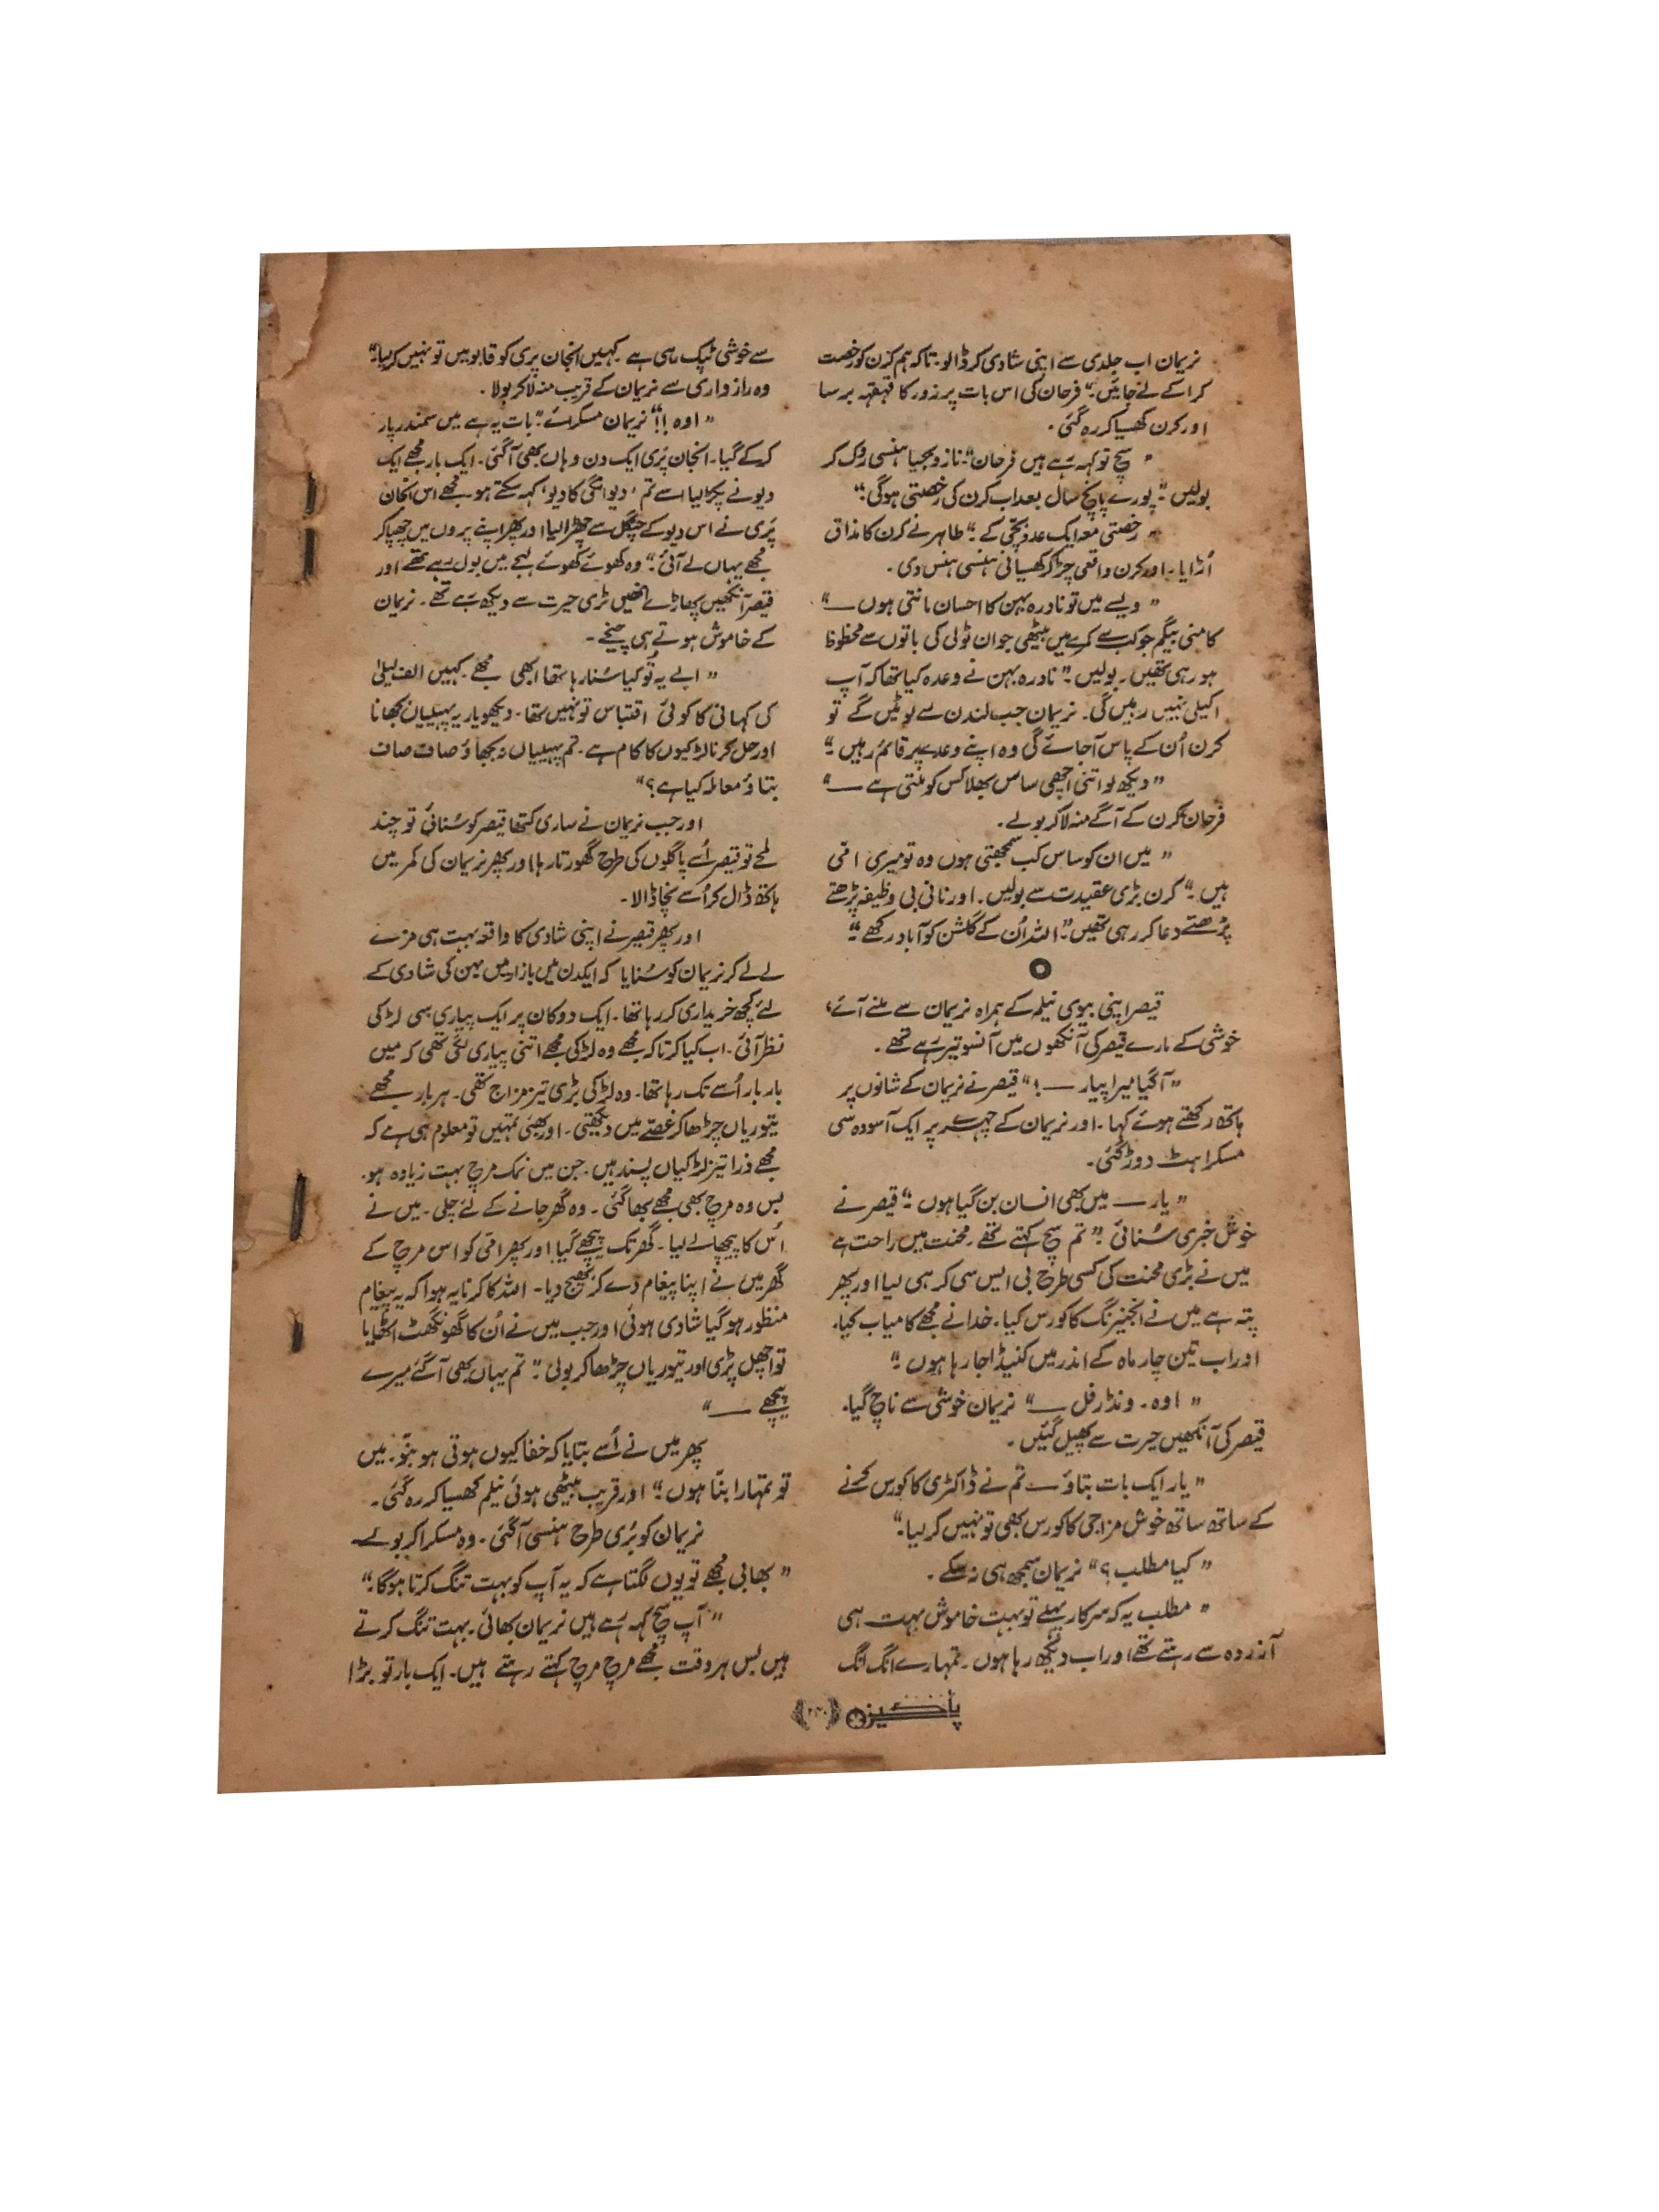 نریمان اب جلدی سے اپنی شادی کر ڈالو۔ تاکہ ہم کرن کو رخصت
کرا کے لے جائیں۔“ فرحان کی اس بات پر زور کا قہقہہ برسا
اور کرن کھسیا کر رہ گئی۔
” سچ تو کہہ رہے ہیں فرحان“۔ نازو بجیا ہنسی روک کر
بولیں ”۔ پورے پانچ سال بعد اب کرن کی رخصتی ہوگی۔“
” رخصتی معہ ایک عدد بچی کے ۔“ طاہر نے کرن کا مذاق
اُڑایا۔ اور کرن واقعی چڑ کر کھسیانی ہنسی ہنس دی۔
” ویسے میں تو نادرہ بہن کا احسان مانتی ہوں ــــ“
کامنی بیگم جو کب سے کمرے میں بیٹھی جوان ٹولی کی باتوں سے محظوظ
ہو رہی تھیں۔ بولیں۔” نادرہ بہن نے وعدہ کیا تھا کہ آپ
اکیلی نہیں رہیں گی۔ نریمان جب لندن سے لوٹیں گے تو
کرن اُن کے پاس آجائے گی وہ اپنے وعدے پر قائم رہیں۔“
” دیکھ لو اتنی اچھی ساس بھلا کس کو ملتی ہے ــــ“
فرحان کرن کے آگے منہ لا کر بولے۔
” میں ان کو ساس کب سمجھتی ہوں وہ تو میری امّی
ہیں ۔“ کرن بڑی عقیدت سے بولیں۔ اور نانی بی وظیفہ پڑھتے
پڑھتے دعا کر رہی تھیں۔” اللہ اُن کے گلشن کو آباد رکھے۔“
قیصر اپنی بیوی نیلم کے ہمراہ نریمان سے ملنے آئے،
خوشی کے مارے قیصر کی آنکھوں میں آنسو تیر رہے تھے۔
” آگیا میرا پیار ــــ !“ قیصر نے نریمان کے شانوں پر
ہاتھ رکھتے ہوئے کہا۔ اور نریمان کے چہرے پر ایک آسودہ سی
مسکراہٹ دوڑ گئی۔
” یار ــــ میں بھی انسان بن گیا ہوں ۔“ قیصر نے
خوش خبری سُنائی ۔” تم سچ کہتے تھے۔ محنت میں راحت ہے
میں نے بڑی محنت کی کسی طرح بی ایس سی کر ہی لیا اور پھر
پتہ ہے میں نے انجنیرنگ کا کورس کیا۔ خدا نے مجھے کامیاب کیا۔
اور اب تین چار ماہ کے اندر میں کنیڈا جا رہا ہوں ۔“
” اوہ۔ ونڈرفل ــــ“ نریمان خوشی سے ناچ گیا۔
قیصر کی آنکھیں حیرت سے پھیل گئیں۔
” یار ایک بات بتاؤ ــــ تم نے ڈاکٹری کا کورس کرنے
کے ساتھ ساتھ خوش مزاجی کا کورس بھی تو نہیں کر لیا۔“
” کیا مطلب؟“ نریمان سمجھ ہی نہ سکے۔
” مطلب یہ کہ سرکار پہلے تو بہت خاموش بہت ہی
آزردہ سے رہتے تھے اور اب دیکھ رہا ہوں۔ تمہارے انگ انگ
سے خوشی ٹپک رہی ہے۔ کہیں انجان پری کو قابو میں تو نہیں کر لیا۔“
وہ رازداری سے نریمان کے قریب منہ لا کر بولا۔
” اوہ !!“ نریمان مسکرائے ۔” بات یہ ہے میں سمندر پار
کر کے گیا۔ انجان پَری ایک دن وہاں بھی آگئی۔ ایک بار مجھے ایک
دیو نے پکڑ لیا اسے تم ’دیوانگی کا دیو‘ کہہ سکتے ہو۔ مجھے اس انجان
پَری نے اس دیو کے چنگل سے چھڑا لیا اور پھر اپنے پروں میں چھپا کر
مجھے یہاں لے آئی ۔“ وہ کھوئے کھوئے لہجے میں بول رہے تھے اور
قیصر آنکھیں پھاڑے انھیں بڑی حیرت سے دیکھ رہے تھے۔ نریمان
کے خاموش ہوتے ہی چیخے۔
” ابے یہ تُو کیا سُنا رہا تھا ابھی مجھے۔ کہیں الف لیلیٰ
کی کہانی کا کوئی اقتباس تو نہیں تھا۔ دیکھو یار یہ پہیلیاں بجھانا
اور حل کرنا لڑکیوں کا کام ہے۔ تم پہیلیاں نہ بجھاؤ صاف صاف
بتاؤ معاملہ کیا ہے؟“
اور جب نریمان نے ساری کتھا قیصر کو سُنائی تو چند
لمحے تو قیصر اُسے پاگلوں کی طرح گھورتا رہا اور پھر نریمان کی کمر میں
ہاتھ ڈال کر اُسے نچا ڈالا۔
اور پھر قیصر نے اپنی شادی کا واقعہ بہت ہی مزے
لے لے کر نریمان کو سُنایا کہ ایکدن میں بازار میں بہن کی شادی کے
لئے کچھ خریداری کر رہا تھا۔ ایک دوکان پر ایک پیاری سی لڑکی
نظر آئی۔ اب کیا کرتا کہ مجھے وہ لڑکی مجھے اتنی پیاری لگی تھی کہ میں
بار بار اُسے تک رہا تھا۔ وہ لڑکی بڑی تیز مزاج تھی۔ ہر بار مجھے
تیوریاں چڑھا کر غصّے میں دیکھتی۔ اور بھئی تمہیں تو معلوم ہی ہے کہ
مجھے ذرا تیز لڑکیاں پسند ہیں۔ جن میں نمک مرچ بہت زیادہ ہو۔
بس وہ مرچ بھی مجھے بھا گئی۔ وہ گھر جانے کے لئے چلی۔ میں نے
اُس کا پیچھا لے لیا۔ گھر تک پیچھے گیا اور پھر امّی کو اس مرچ کے
گھر میں نے اپنا پیغام دے کر بھیج دیا۔ اللہ کا کرنا یہ ہوا کہ یہ پیغام
منظور ہو گیا شادی ہوئی اور جب میں نے اُن کا گھونگھٹ اٹھایا
تو اچھل پڑی اور تیوریاں چڑھا کر بولی ۔” تم یہاں بھی آگئے میرے
پیچھے ــــ“
پھر میں نے اُسے بتایا کہ خفا کیوں ہوتی ہو بنّو۔ میں
تو تمہارا بنّا ہوں ۔“ اور قریب بیٹھی ہوئی نیلم کھسیا کر رہ گئی۔
نریمان کو بُری طرح ہنسی آگئی۔ وہ مسکرا کر بولے۔
” بھابی مجھے تو یوں لگتا ہے کہ یہ آپ کو بہت تنگ کرتا ہوگا۔“
” آپ سچ کہہ رہے ہیں نریمان بھائی۔ بہت تنگ کرتے
ہیں بس ہر وقت مجھے مرچ مرچ کہتے رہتے ہیں۔ ایک بار تو بڑا
پاکیزہ